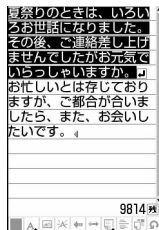 夏祭りのときは、いろい
ろお世話になりました。
その後、ご連絡差し上げ
ませんでしたがお元気で
いらっしゃいますか。
お忙しいとは存じており
ますが、ご都合が合いま
したら、また、お会いし
たいです。
9814残